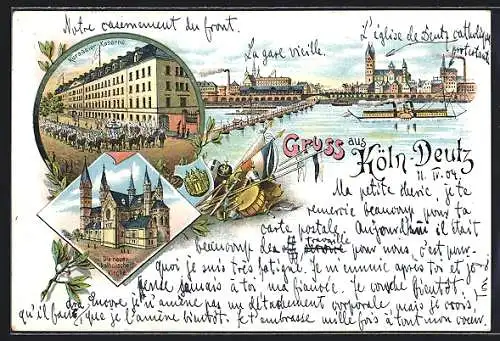 Notre casernement du front.
L'église de Deutz catholique
protestant
La gare vieille.
Kürassier-Kaserne.
Gruss aus
Köln-Deutz
11. IV. 04.
Ma petite chérie, je te
remercie beaucoup pour ta
carte postale. Aujourd'hui il était
beaucoup de travaille
pour nous, c'est pour-
quoi je suis très fatigué. Je m'ennuie après toi et
jamais à toi, ma fiancée. Je couche bientôt.
Encore je t'amène pas un détachement corporale, mais je crois,
qu'il faut, que je l'amène bientôt. Je t'embrasse mille fois à tout mon cœur.
Die neue
katholische
Kirche